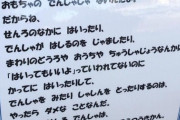 おもちゃの でんしゃは
だからね、
せんろのなかに はいったり、
でんしゃが はしるのを じゃましたり、
まわりのどうろや おうちや ちゅうしゃじょうなんか
「はいってもいいよ」っていわれてないのに
かってに はいったりして、
でんしゃを みたり しゃしんを とったりするのは、
やったら ダメな ことなんだ。
でんしゃは、